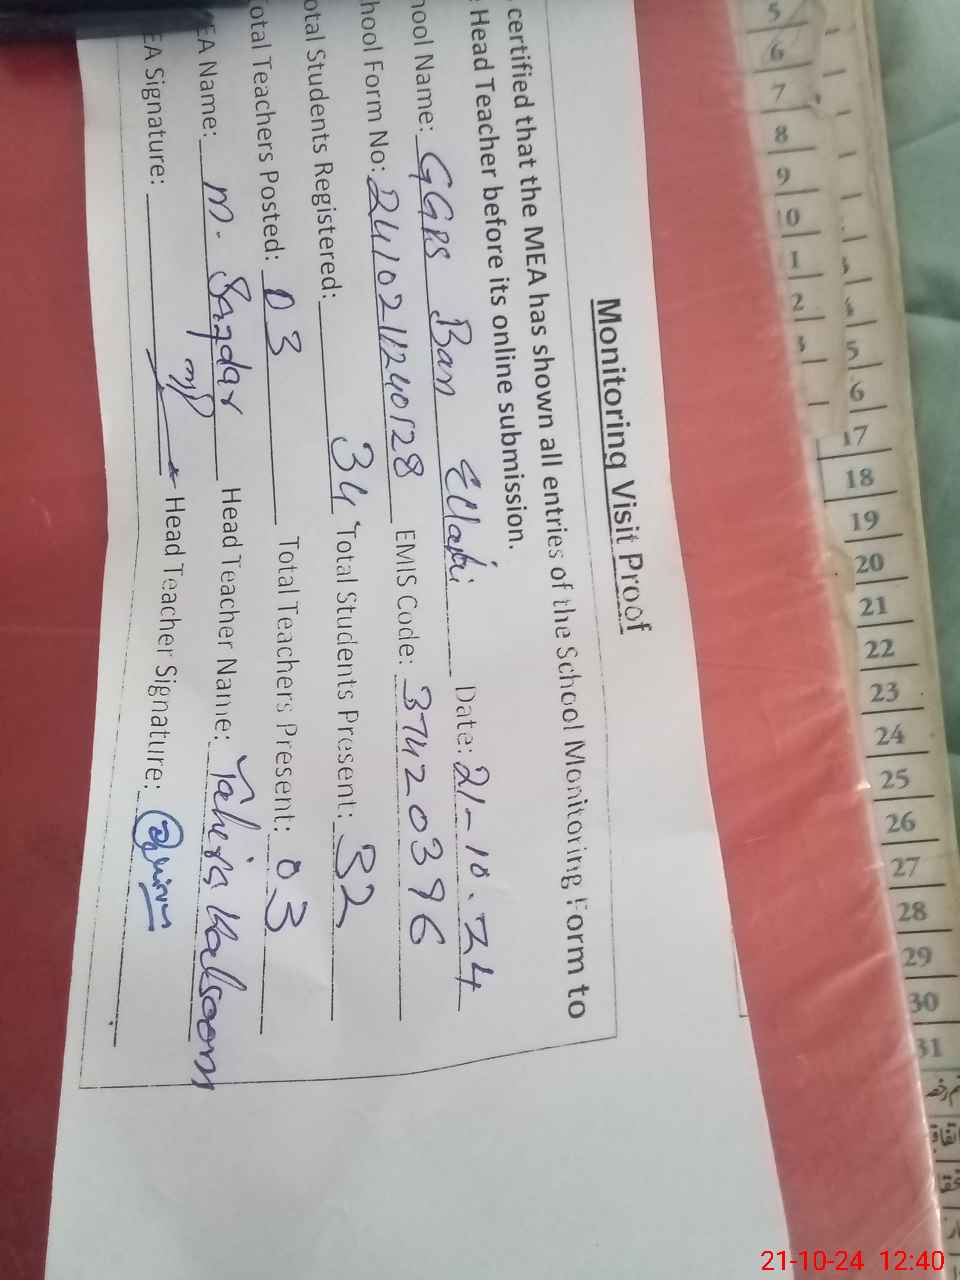 Monitoring Visit Proof
certified that the MEA has shown all entries of the School Monitoring Form to
Head Teacher before its online submission.
hool Name: GGPS Ban Ellahi Date: 21-10-24
hool Form No: 2410211240128 EMIS Code: 37420396
otal Students Registered: 34 Total Students Present: 32
otal Teachers Posted: 03 Total Teachers Present: 03
EA Name: M. Safdar Head Teacher Name: Tahira Kalsoom
EA Signature: Head Teacher Signature:
5 6 7 8 9 0 1 2
5 6 17 18 19 20 21 22 23 24 25 26 27 28 29 30 31
21-10-24 12:40